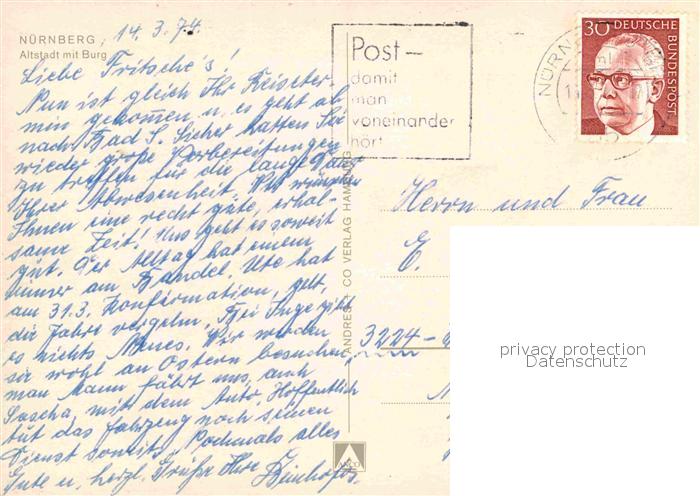 NÜRNBERG, 14.3.74.
Altstadt mit Burg
Liebe Fritsche's!
Nun ist gleich Ihr Reiseter-
min gekommen u. es geht ab
nach Bad S. Sicher hatten Sie
wieder große Vorbereitungen
zu treffen für die lange Dauer
Ihrer Abwesenheit. Wir wünschen
Ihnen eine recht gute, erhol-
same Zeit! Uns geht es soweit
gut. Der Alltag hat einen
immer am Bandel. Ute hat
am 31.3. Konfirmation, gelt,
die Jahre vergehn. Bei Inge gibt
es nichts Neues. Wir werden
sie wohl an Ostern besuchen,
man Mann fährt uns, auch
Sascha, mit dem Auto. Hoffentlich
tut das Fahrzeug noch seinen
Dienst soweit. Nochmals alles
Gute u. herzl. Grüße Ihre
Post-
damit
man
voneinander
hört
30 DEUTSCHE BUNDESPOST
NÜRN
ANDRES + CO VERLAG HAMBURG
ANCO
Herrn und Frau
E.
3224-
privacy protection
Datenschutz